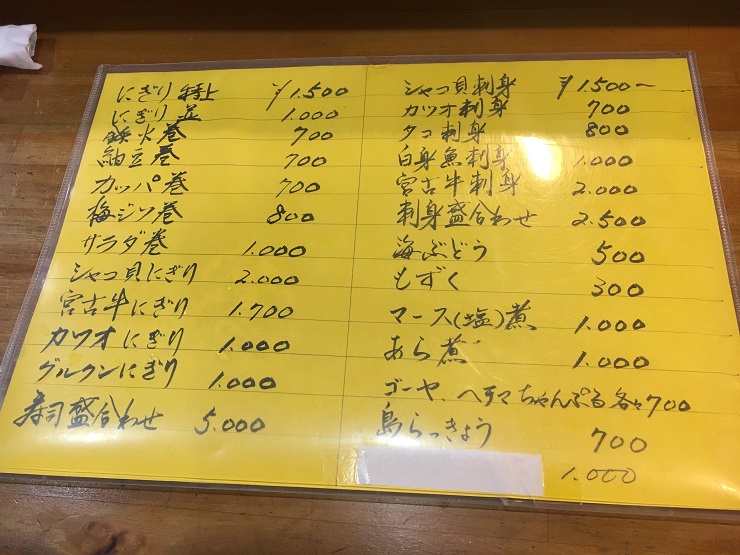 にぎり 特上 ¥1.500
にぎり 並 1.000
鉄火巻 700
納豆巻 700
カッパ巻 700
梅ジソ巻 800
サラダ巻 1.000
シャコ貝にぎり 2.000
宮古牛にぎり 1.700
カツオにぎり 1.000
グルクンにぎり 1.000
寿司盛合わせ 5.000
シャコ貝刺身 ¥1.500〜
カツオ刺身 700
タコ刺身 800
白身魚刺身 1.000
宮古牛刺身 2.000
刺身盛合わせ 2.500
海ぶどう 500
もずく 300
マース(塩)煮 1.000
あら煮 1.000
ゴーヤ、ヘチマちゃんぷる各々700
島らっきょう 700
1.000